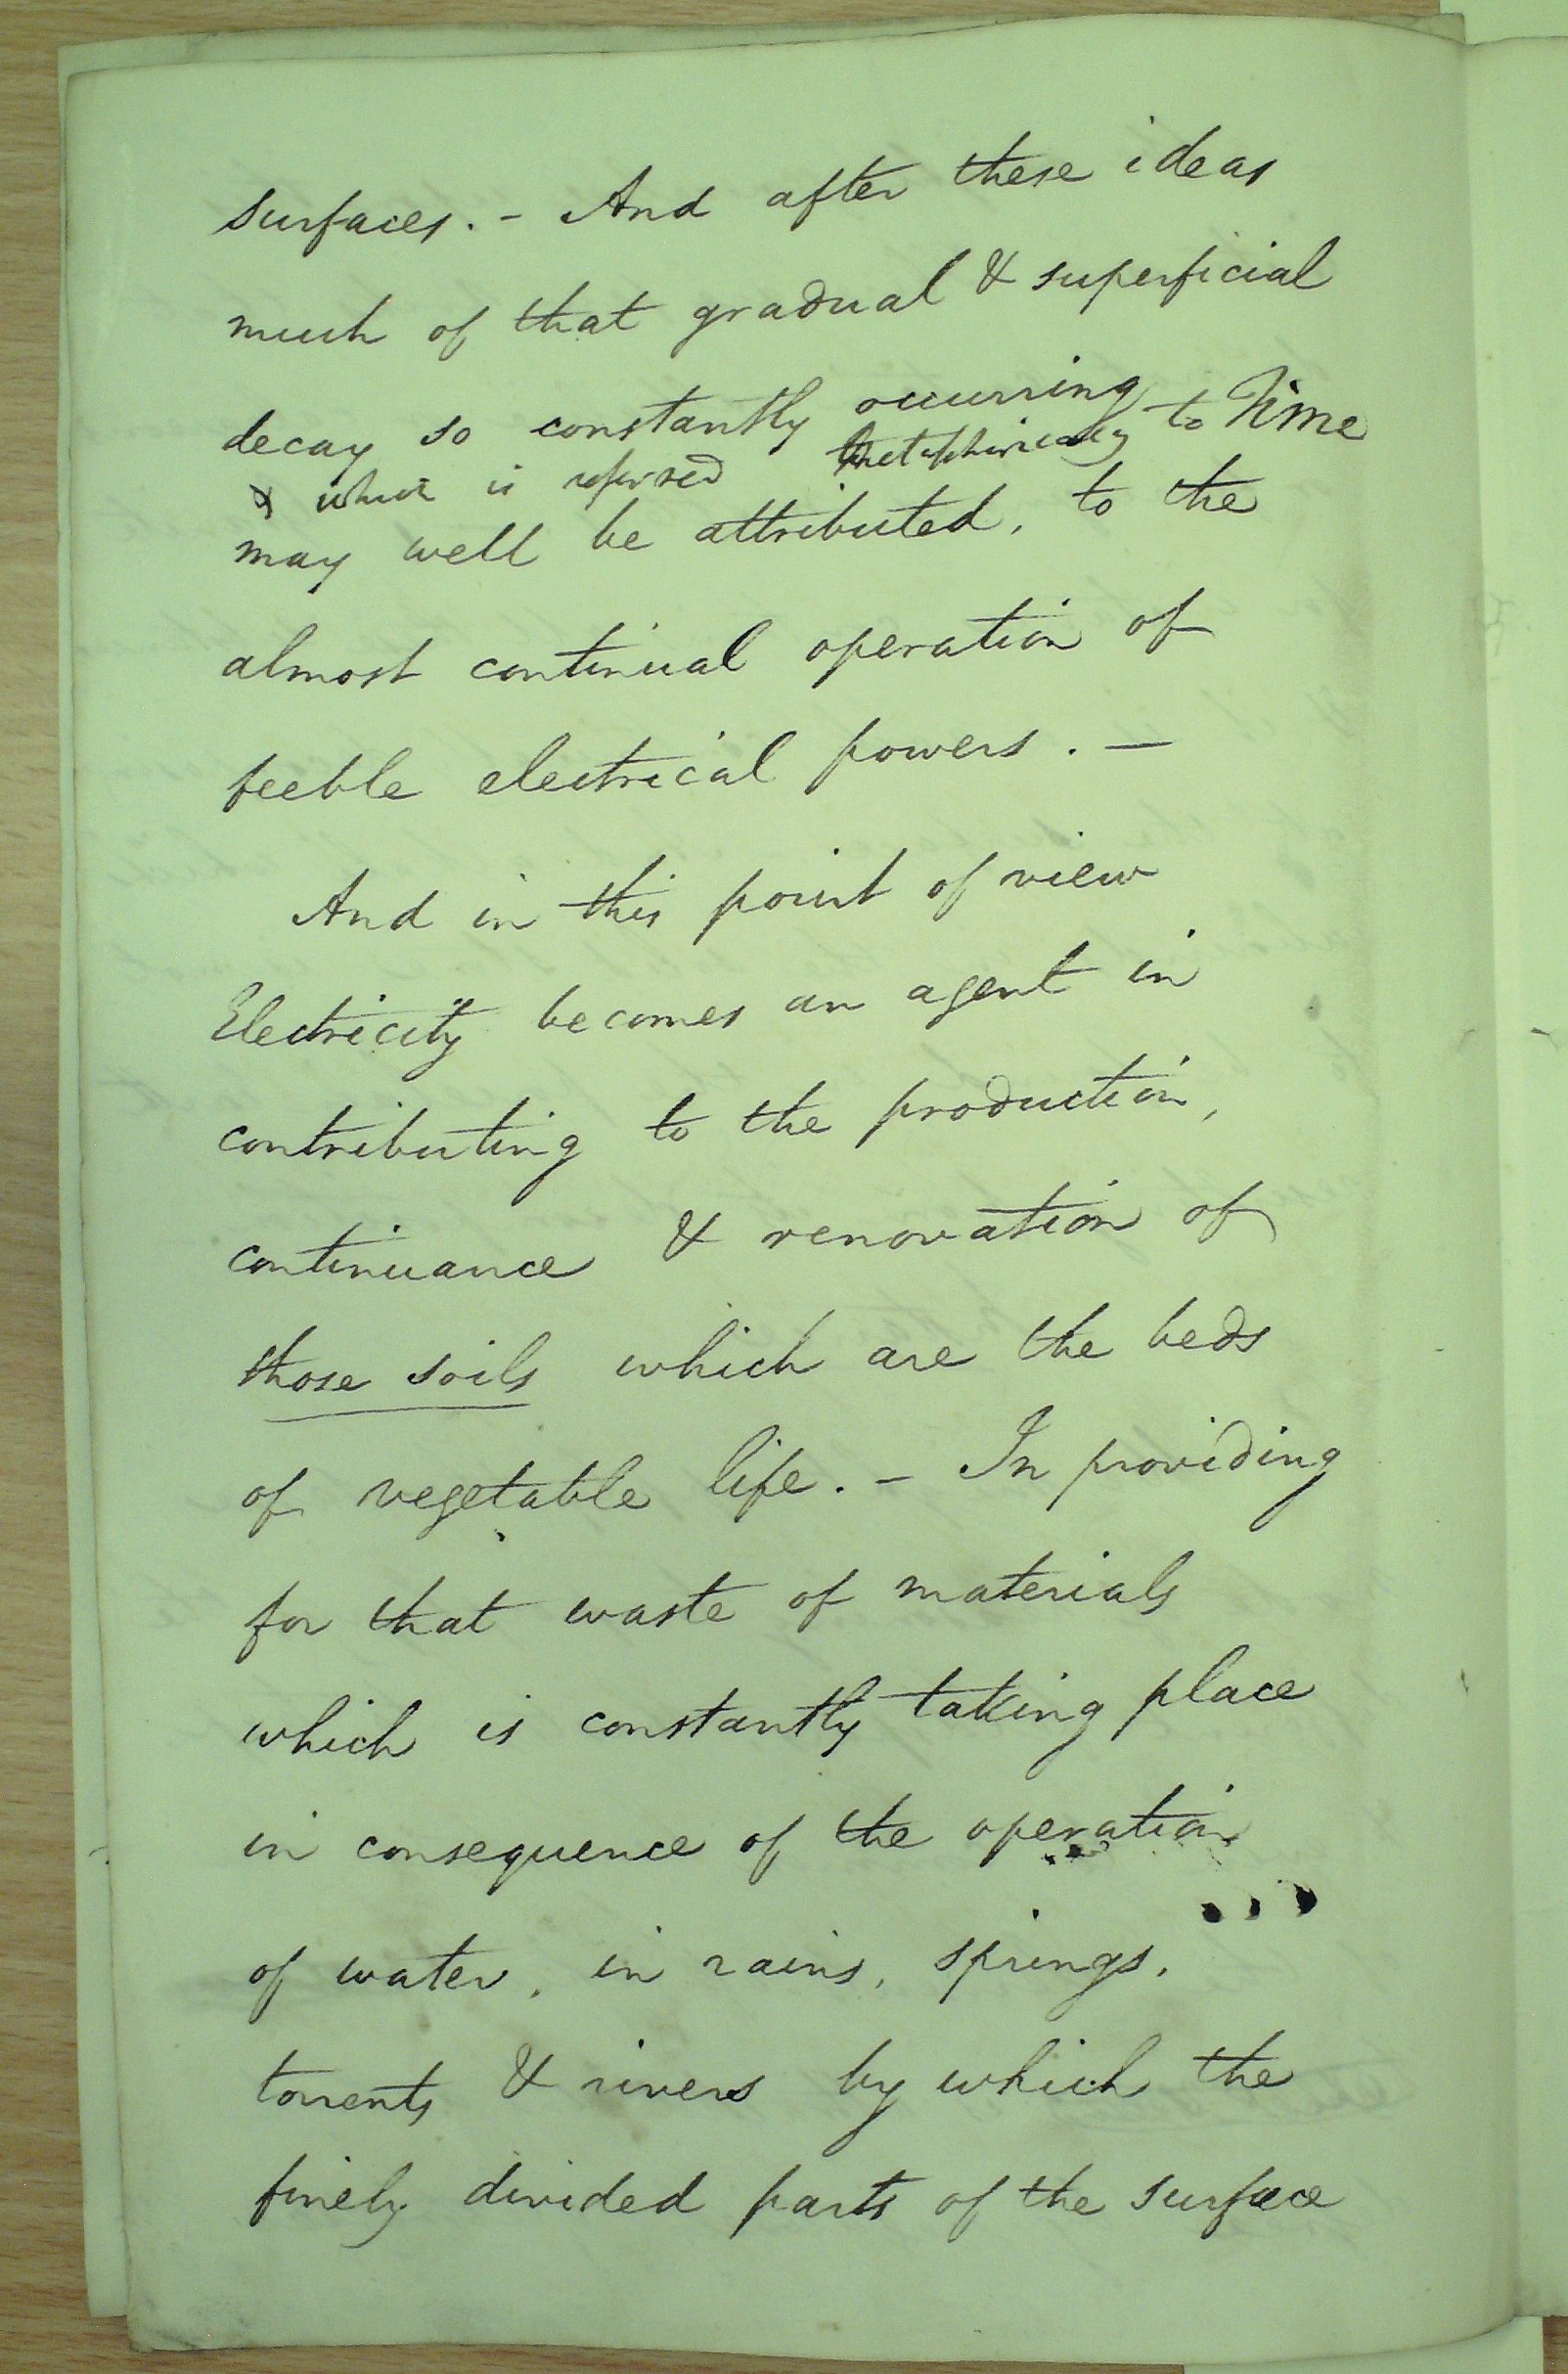 surfaces. - And after these ideas
much of that gradual & superficial
decay so constantly occurring
& which is referred metaphorically to Time
may well be attributed, to the
almost continual operation of
feeble electrical powers. —
And in this point of view
Electricity becomes an agent in
contributing to the production,
continuance & renovation of
those soils which are the beds
of vegetable life. - In providing
for that waste of materials
which is constantly taking place
in consequence of the operation
of water, in rains, springs,
torrents & rivers by which the
finely divided parts of the surface